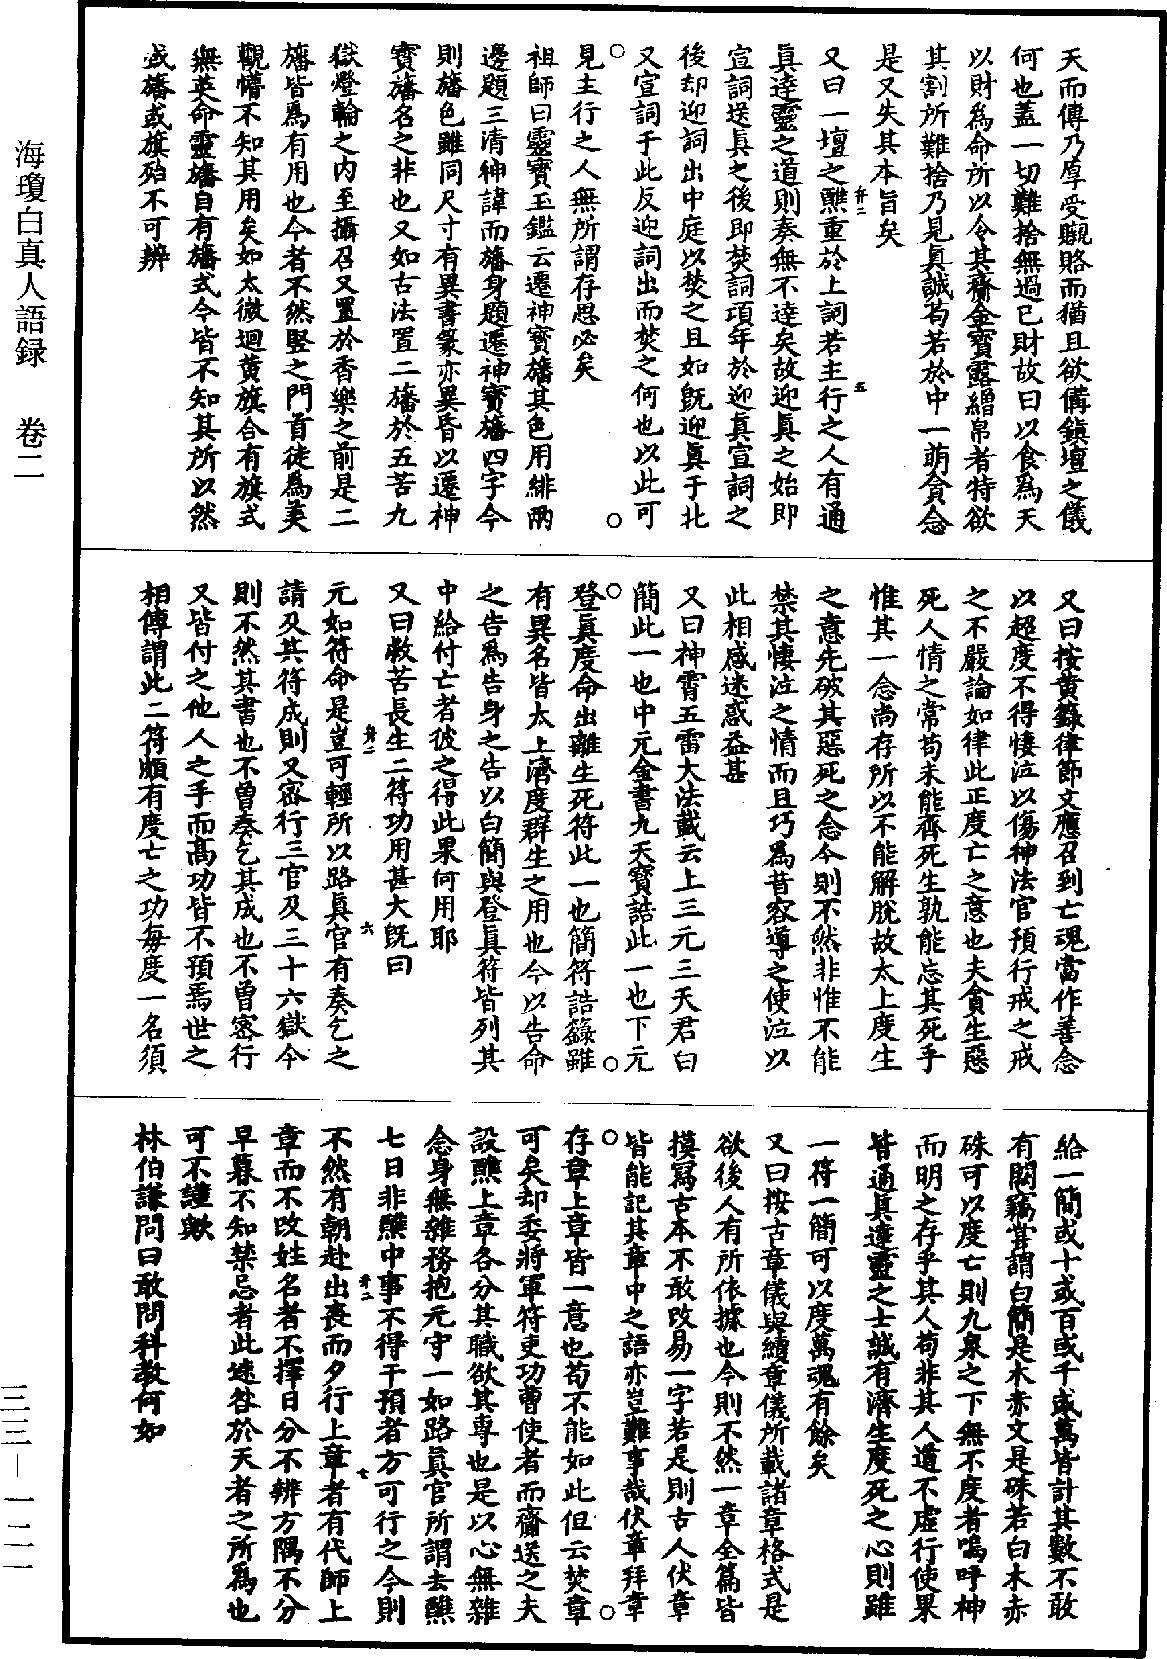 天而傳乃厚受賕賂而猶且欲備鎮壇之儀
何也蓋一切難捨無過己財故曰以食為天
以財為命所以令其齎金寶露繒帛者特欲
其割所難捨乃見真誠苟若於中一萌貪念
是又失其本旨矣
又曰一壇之醮重於上詞若主行之人有通
真達靈之道則奏無不達矣故迎真之始即
宣詞送真之後即焚詞項年於迎真宣詞之
後却迎詞出中庭以焚之且如既迎真于北
又宣詞于此反迎詞出而焚之何也以此可
見主行之人無所謂存思必矣
祖師曰靈寶玉鑑云遷神寶旛其色用緋兩
邊題三清神諱而旛身題遷神寶旛四字今
則旛色雖同尺寸有異書篆亦異昏以遷神
寶旛名之非也又如古法置二旛於五苦九
獄燈輪之內至攝召又置於香樂之前是二
旛皆為有用也今者不然竪之門首徒為美
觀懵不知其用矣如太微迴黃旗合有旗式
無英命靈旛自有旛式今皆不知其所以然
或旛或旗殆不可辨
又曰按黃籙律節文應召到亡魂當作善念
以超度不得悽泣以傷神法官預行戒之戒
之不嚴論如律此正度亡之意也夫貪生惡
死人情之常苟未能齊死生孰能忘其死乎
惟其一念尚存所以不能解脫故太上度生
之意先破其惡死之念今則不然非惟不能
禁其悽泣之情而且巧為昔容導之使泣以
此相感迷惑益甚
又曰神霄五雷大法載云上三元三天君曰
簡此一也中元金書九天寶誥此一也下元
登真度命出離生死符此一也簡符誥籙雖
有異名皆太上濟度群生之用也今以告命
之告為告身之告以白簡與登真符皆列其
中給付亡者彼之得此果何用耶
又曰救苦長生二符功用甚大既曰
元如符命是豈可輕所以路真官有奏乞之
請及其符成則又密行三官及三十六獄今
則不然其書也不曾奏乞其成也不曾密行
又皆付之他人之手而高功皆不預焉世之
相傳謂此二符頗有度亡之功每度一名須
給一簡或十或百或千或萬皆計其數不敢
有闕竊嘗謂白簡是木赤文是硃若白木赤
硃可以度亡則九泉之下無不度者嗚呼神
而明之存乎其人苟非其人道不虛行使果
皆通真達靈之士誠有濟生度死之心則雖
一符一簡可以度萬魂有餘矣
又曰按古章儀與續章儀所載諸章格式是
欲後人有所依據也今則不然一章全篇皆
摸寫古本不敢改易一字若是則古人伏章
皆能記其章中之語亦豈難事哉伏章拜章
存章上章皆一意也苟不能如此但云焚章
可矣却委將軍符吏功曹使者而齎送之夫
設醮上章各分其職欲其專也是以心無雜
念身無雜務抱元守一如路真官所謂去醮
七日非醮中事不得干預者方可行之今則
不然有朝赴出喪而夕行上章者有代師上
章而不改姓名者不擇日分不辨方隅不分
早暮不知禁忌者此速咎於天者之所為也
可不謹歟
林伯謙問曰敢問科教何如
海瓊白真人語録　卷二
三三－一二一